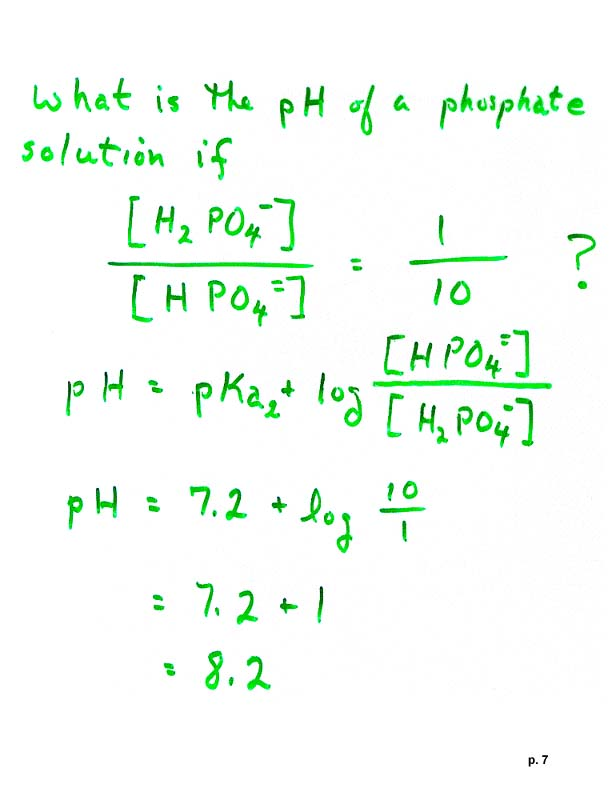 What is the pH of a phosphate
solution if
[H₂PO₄⁻]
/ [HPO₄⁼] = 1/10 ?
pH = pKa₂ + log [HPO₄⁼]/[H₂PO₄⁻]
pH = 7.2 + log 10/1
= 7.2 + 1
= 8.2
p. 7